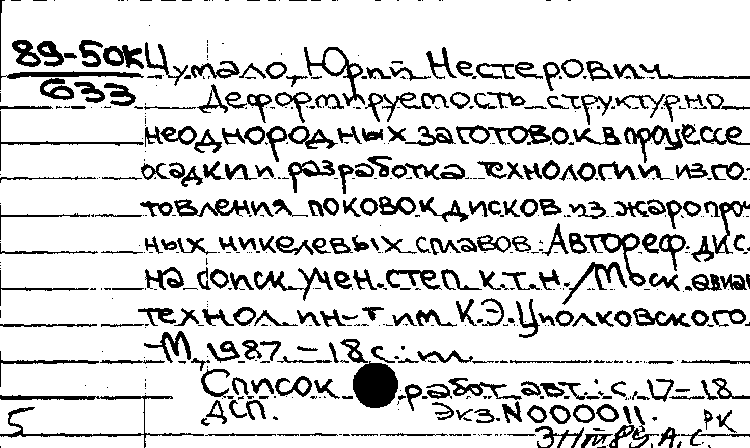 89-50К
633
Чумало, Юрий Нестерович
Деформируемость структурно
неоднородных заготовок в процессе
осадки и разработка технологии изго-
товления поковок дисков из жаропроч
ных никелевых сплавов: Автореф. дис.
на соиск. учен. степ. к.т.н. / Моск. авиац
технол. ин-т им. К.Э. Циолковского.
-М., 1987. - 18 с.: ил.
Список работ авт.: с. 17-18
ДСП. Экз. N000011.
5